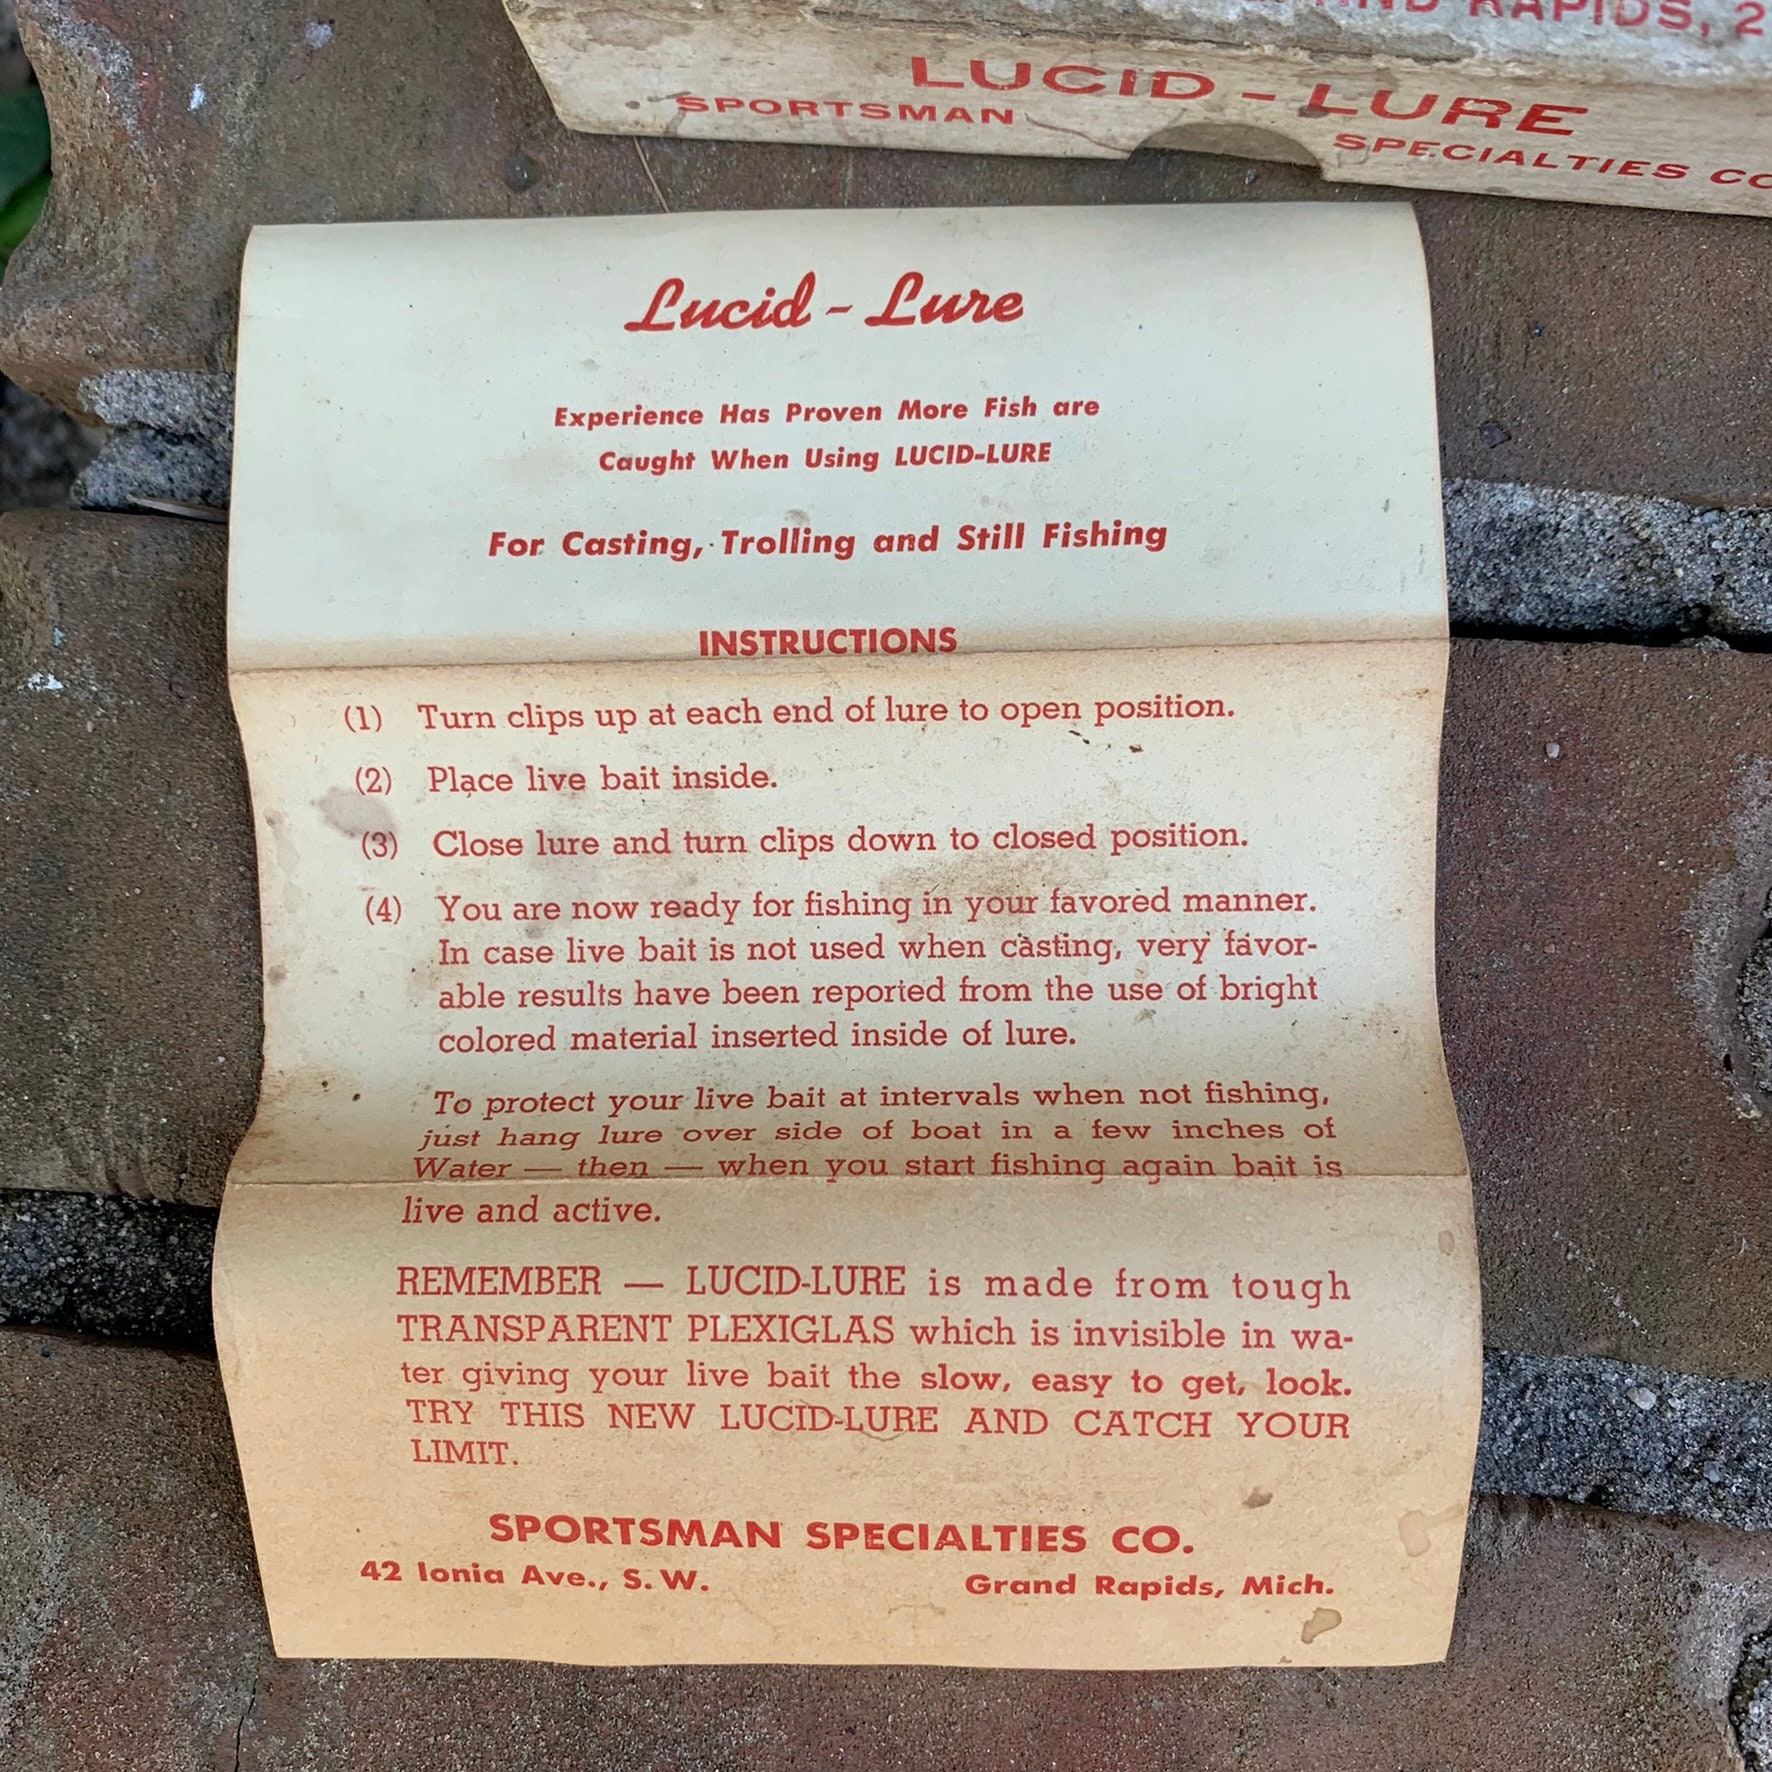 AND RAPIDS, 2
LUCID - LURE
SPORTSMAN
SPECIALTIES CO
Lucid - Lure
Experience Has Proven More Fish are
Caught When Using LUCID-LURE
For Casting, Trolling and Still Fishing
INSTRUCTIONS
(1) Turn clips up at each end of lure to open position.
(2) Place live bait inside.
(3) Close lure and turn clips down to closed position.
(4) You are now ready for fishing in your favored manner.
In case live bait is not used when casting, very favor-
able results have been reported from the use of bright
colored material inserted inside of lure.
To protect your live bait at intervals when not fishing,
just hang lure over side of boat in a few inches of
Water — then — when you start fishing again bait is
live and active.
REMEMBER — LUCID-LURE is made from tough
TRANSPARENT PLEXIGLAS which is invisible in wa-
ter giving your live bait the slow, easy to get, look.
TRY THIS NEW LUCID-LURE AND CATCH YOUR
LIMIT.
SPORTSMAN SPECIALTIES CO.
42 Ionia Ave., S. W. Grand Rapids, Mich.